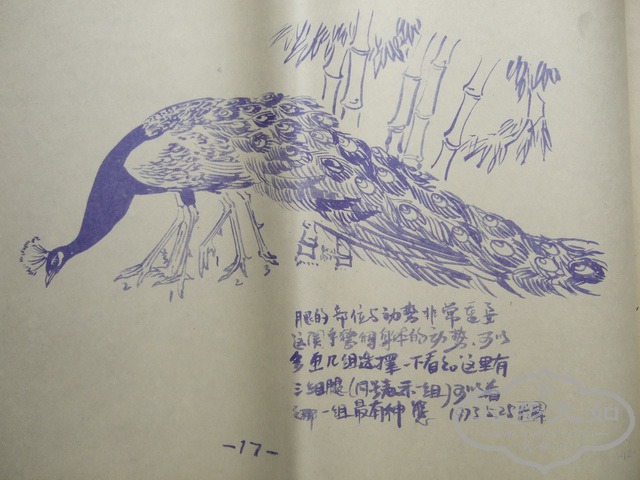 2 1 2 3
腿的部位与动势非常重要
这关乎整个身体的动势.可以
多画几组选择一下看如这里有
三组腿(同号表示一组)可以看
哪一组最有神态 1973.5.25
-17-